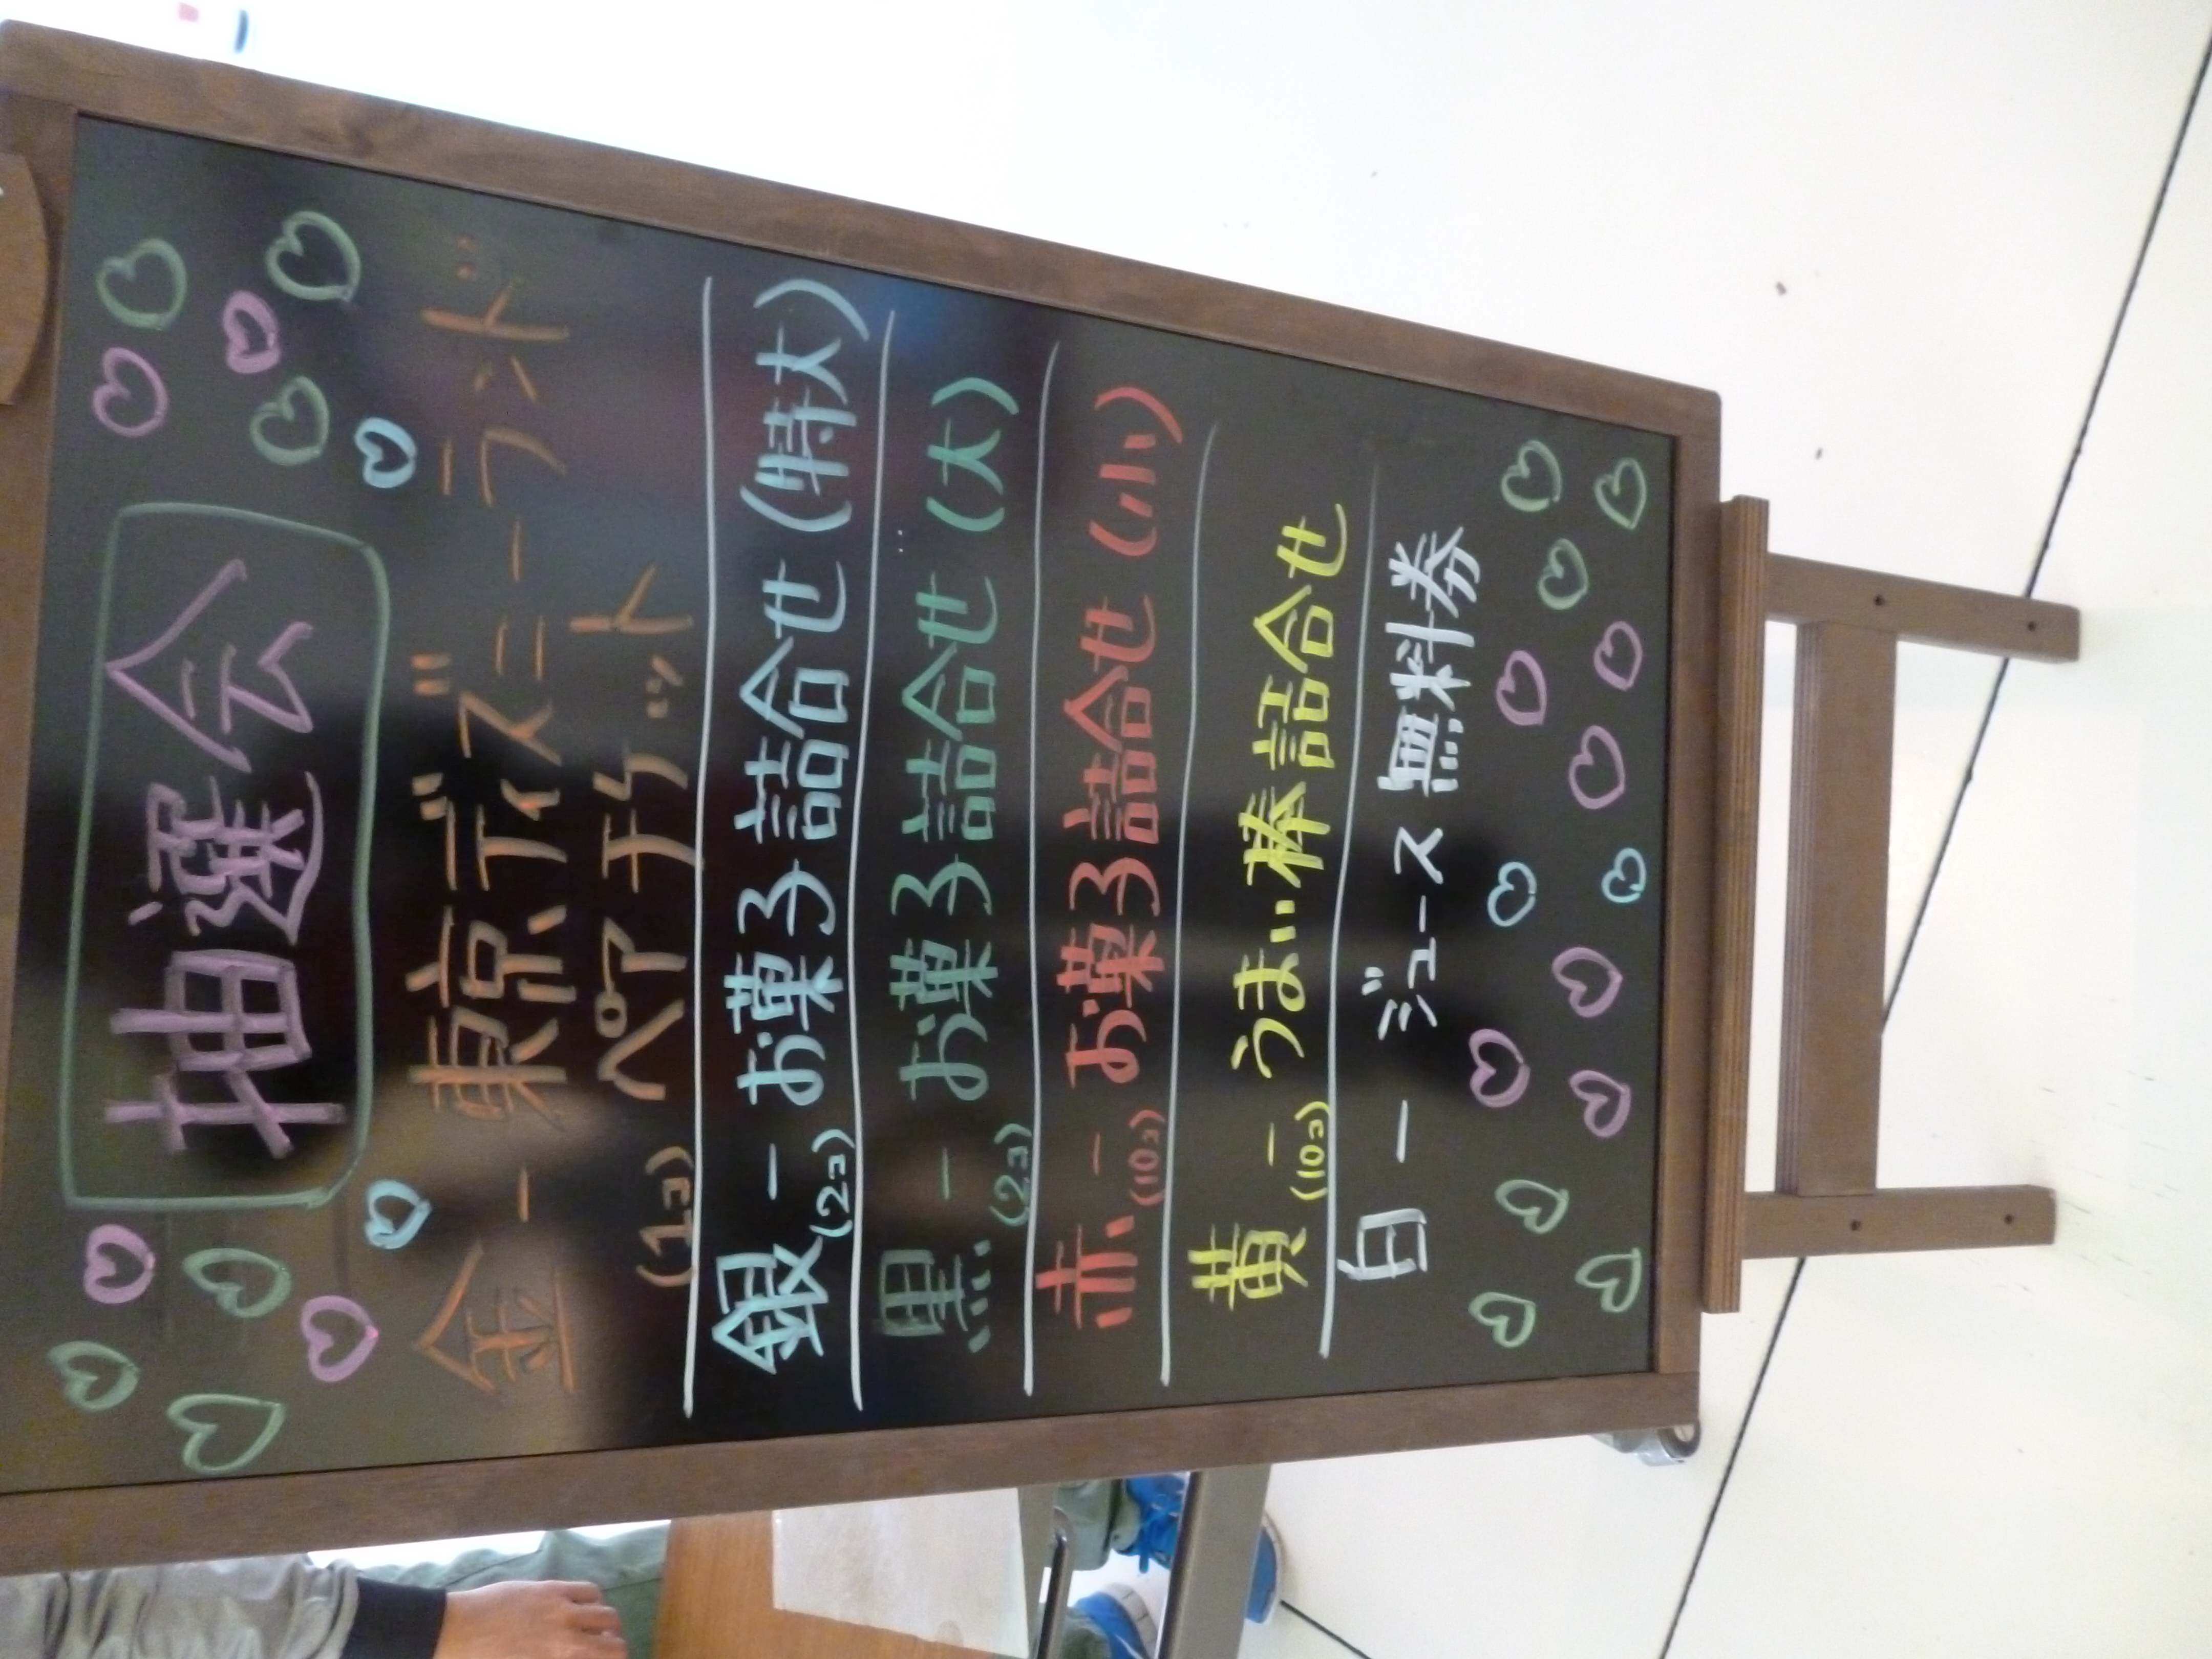 抽選会
金 - 東京ディズニーランド
(1コ) ペアチケット
銀 - お菓子詰合せ(特大)
(2コ)
黒 - お菓子詰合せ(大)
(2コ)
赤 - お菓子詰合せ(小)
(10コ)
黄 - うまい棒詰合せ
(10コ)
白 - ジュース無料券